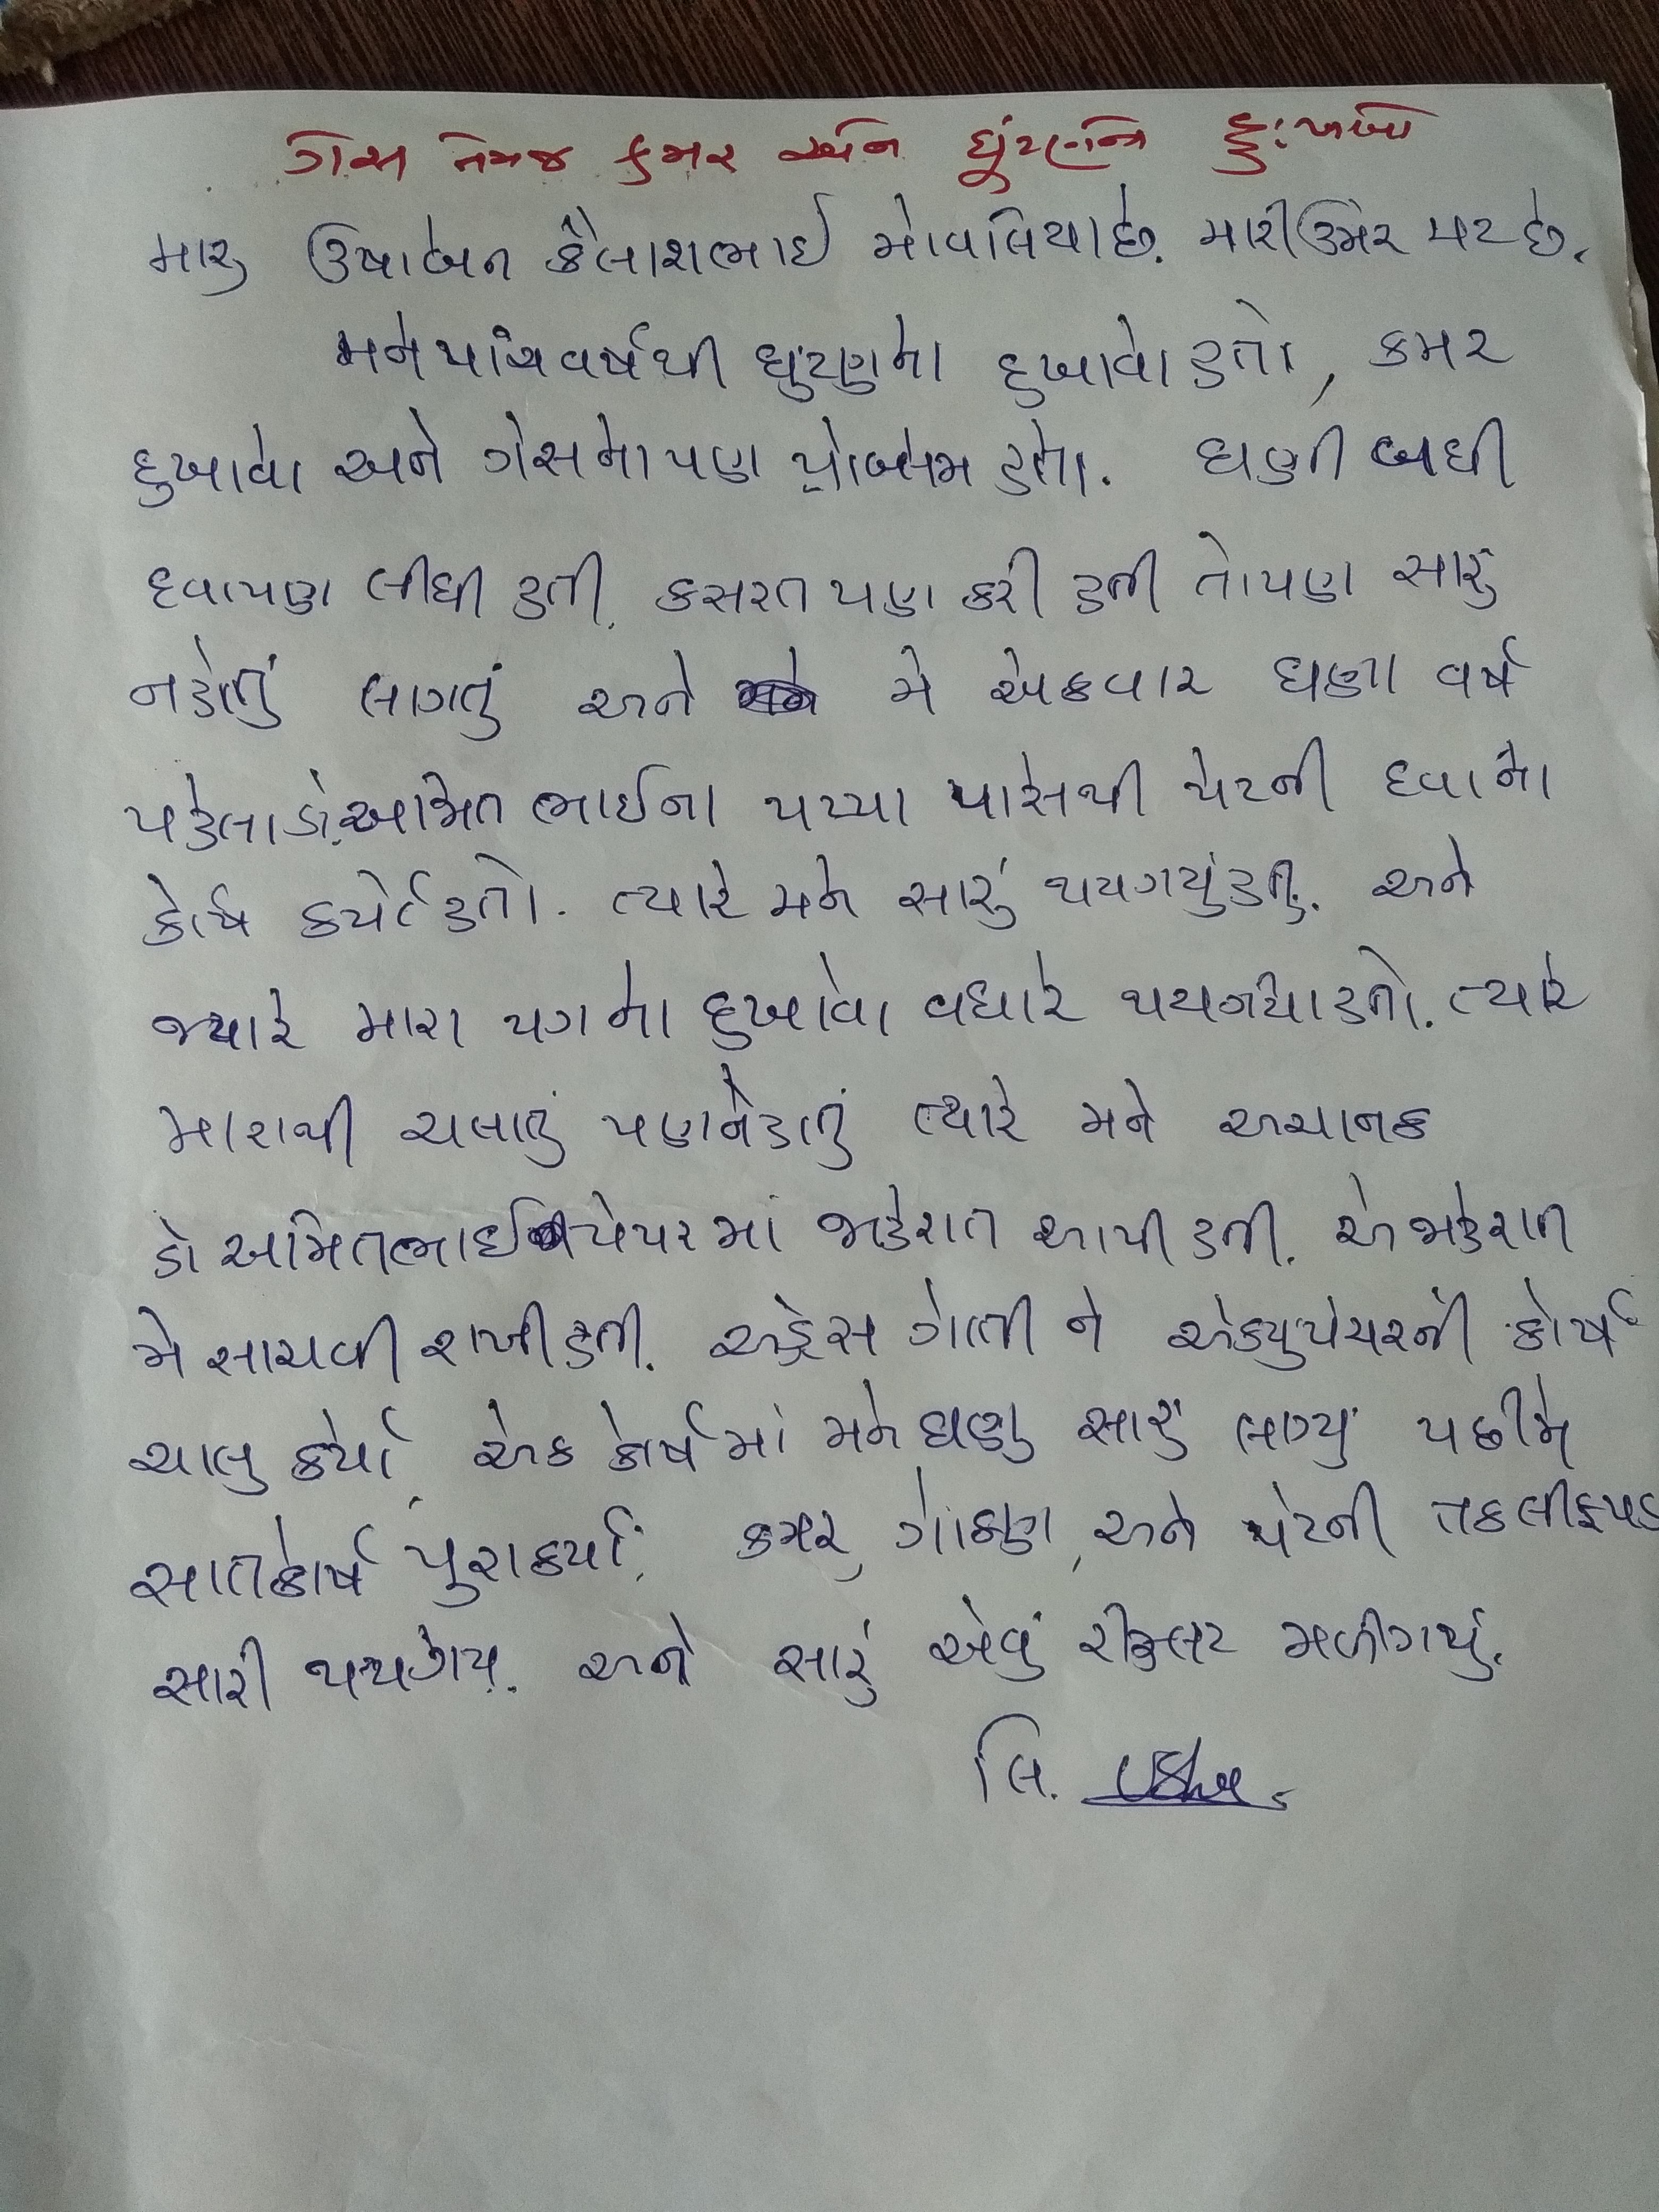 ગેસ તેમજ કમર અને ઘૂંટણનો દુઃખાવો
મારૂ ઉષાબેન કૈલાશભાઈ મોવલિયા છે. મારી ઉંમર ૫૨ છે.
મને પાંચ વર્ષથી ઘુંટણનો દુખાવો હતો, કમર
દુખાવો અને ગેસનો પણ પ્રોબ્લેમ હતો. ઘણી બધી
દવા પણ લીધી હતી. કસરત પણ કરી હતી તો પણ સારું
નહોતું લાગતું અને મે એકવાર ઘણા વર્ષ
પહેલા ડો. અમિતભાઈના પપ્પા પાસેથી પેટની દવાનો
કોર્ષ કર્યો હતો. ત્યારે મને સારું થય ગયું હતું. અને
જ્યારે મારા પગનો દુખાવો વધારે થય ગયો હતો. ત્યારે
મારાથી ચલાતું પણ નહોતું ત્યારે મને અચાનક
ડો અમિતભાઈ પેપરમાં જાહેરાત આપી હતી. એ જાહેરાત
મે સાચવી રાખી હતી. એડ્રેસ ગોતી ને એક્યુપ્રેચરનો કોર્ષ
ચાલુ કર્યો. એક કોર્ષમાં મને ઘણુ સારું લાગ્યું પછી મે
સાત કોર્ષ પુરા કર્યા. કમર, ગોઠણ, અને પેટની તકલીફ પણ
સારી થય ગય. અને સારું એવું રીઝલ્ટ મળી ગયું.
લિ. Usha